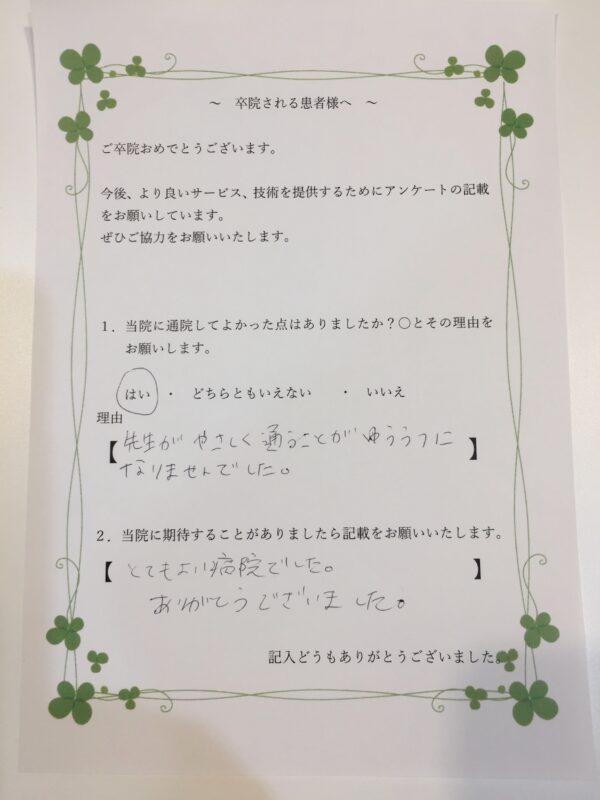 ～ 卒院される患者様へ ～
ご卒院おめでとうございます。
今後、より良いサービス、技術を提供するためにアンケートの記載
をお願いしています。
ぜひご協力をお願いいたします。
１．当院に通院してよかった点はありましたか？〇とその理由を
お願いします。
はい ・ どちらともいえない ・ いいえ
理由
【先生が やさしく 通うことが ゆううつに】
なりませんでした。
２．当院に期待することがありましたら記載をお願いいたします。
【とてもよい病院でした。】
ありがとうございました。
記入どうもありがとうございました。